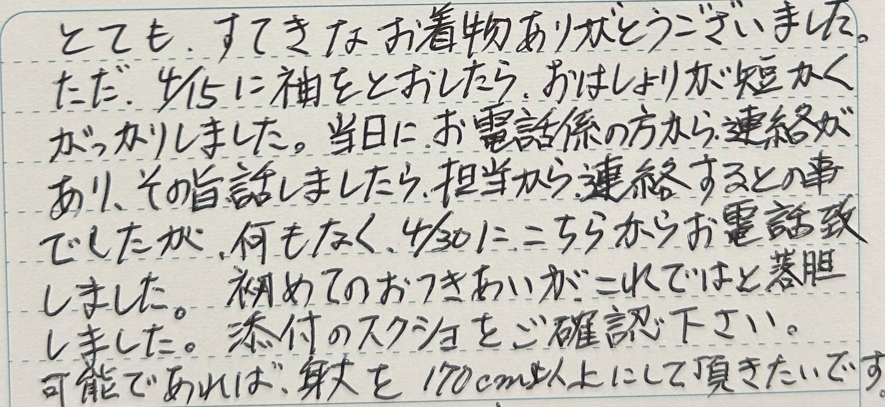 とても、すてきなお着物ありがとうございました。
ただ、4/15に袖をとおしたら、おはしょりが短かく
がっかりしました。当日に、お電話係の方から、連絡が
あり、その旨話しましたら、担当から連絡するとの事
でしたが、何もなく、4/30に、こちらからお電話致
しました。初めてのおつきあいがこれではと落胆
しました。添付のスクショをご確認下さい。
可能であれば、身丈を170cm以上にして頂きたいです。